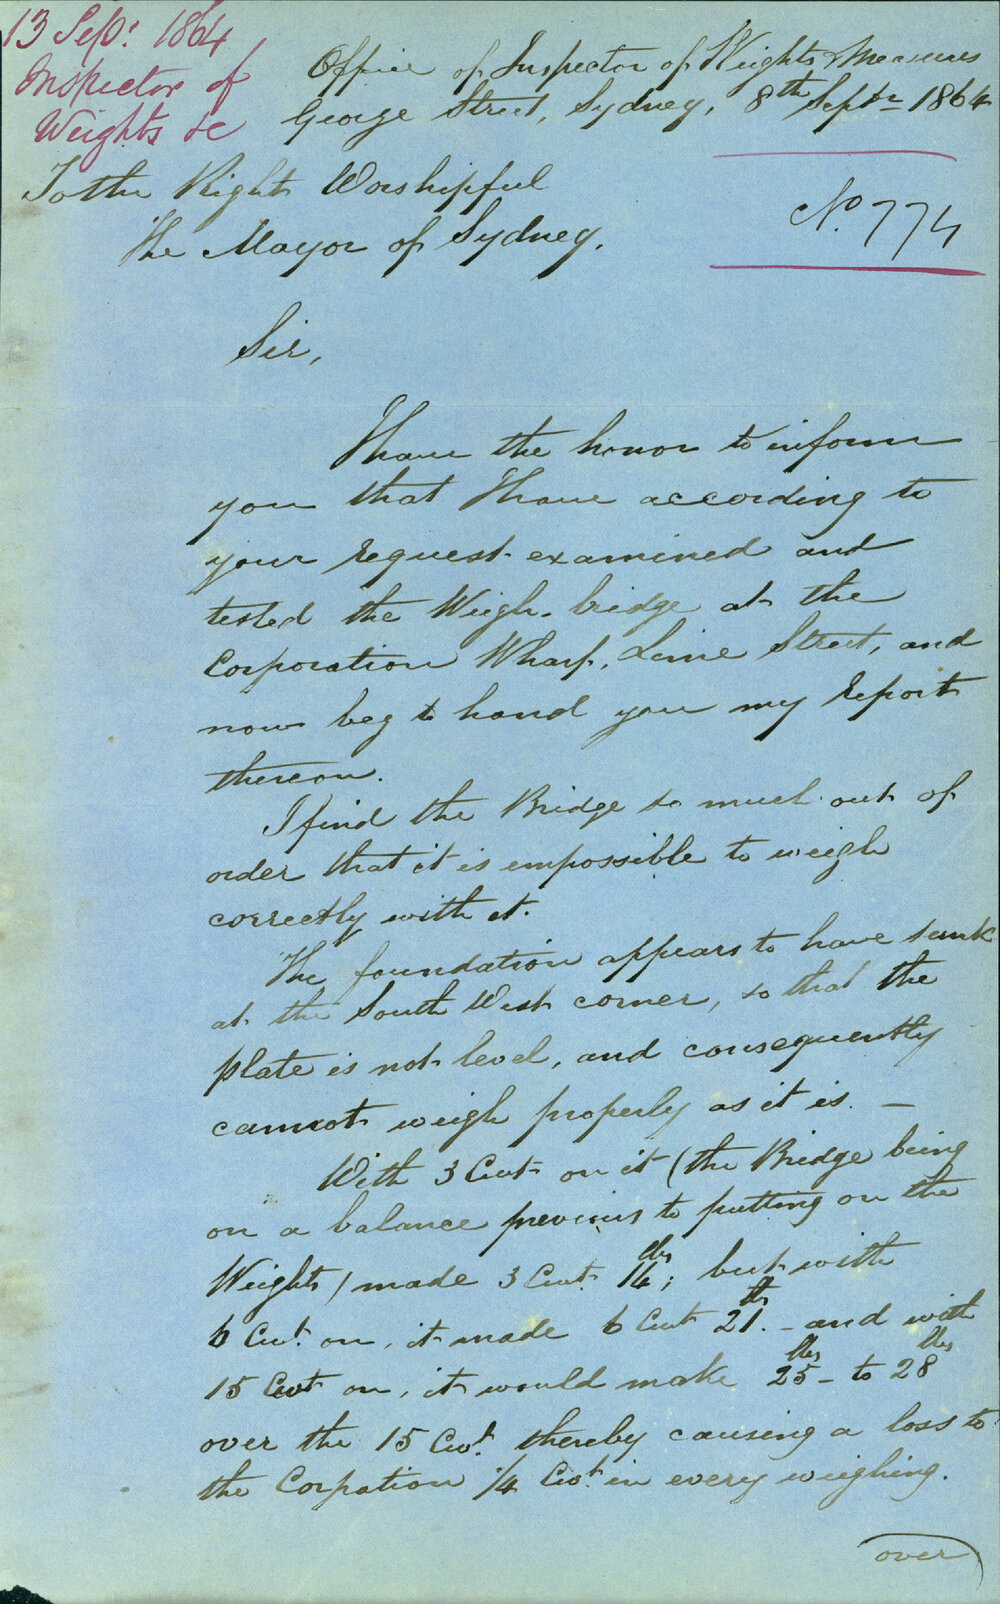 13 Sep: 1864
Inspector of
Weights &c
Office of Inspector of Weights & Measures
George Street, Sydney, 8th Septr 1864
No. 774
To the Right Worshipful
The Mayor of Sydney.
Sir,
I have the honor to inform
you that I have according to
your request examined and
tested the Weigh-bridge at the
Corporation Wharf, Lime Street, and
now beg to hand you my report
thereon.
I find the Bridge so much out of
order that it is impossible to weigh
correctly with it.
The foundation appears to have sunk
at the South West corner, so that the
plate is not level, and consequently
cannot weigh properly as it is. —
With 3 Cwt on it (the Bridge being
on a balance previous to putting on the
Weights) made 3 Cwt. 14 lbs; but with
6 Cwt. on, it made 6 Cwt 21. lb - and with
15 Cwt on, it would make 25 lbs - to 28 lbs
over the 15 Cwt. thereby causing a loss to
the Corpation 1/4 Cwt. in every weighing.
over